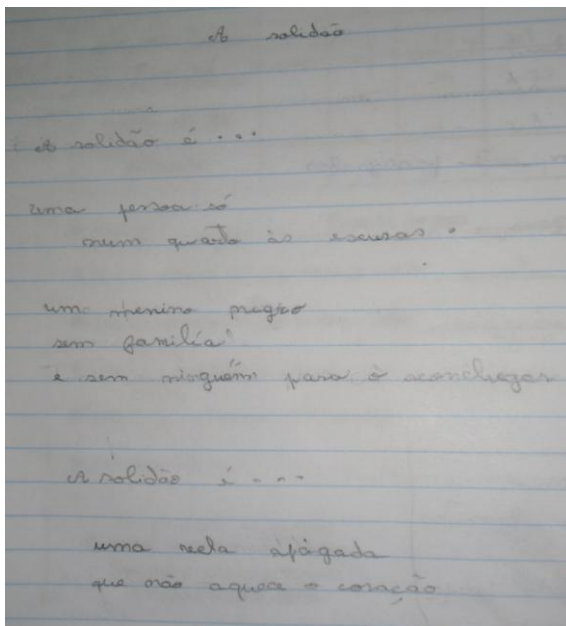 A solidão
A solidão é ...
uma pessoa só
num quarto às escuras.
um menino negro
sem família
e sem ninguém para o aconchegar
A solidão é ...
uma vela apágada
que não aquece o coração